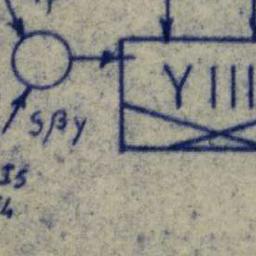 YIII
Sβγ
I5
4